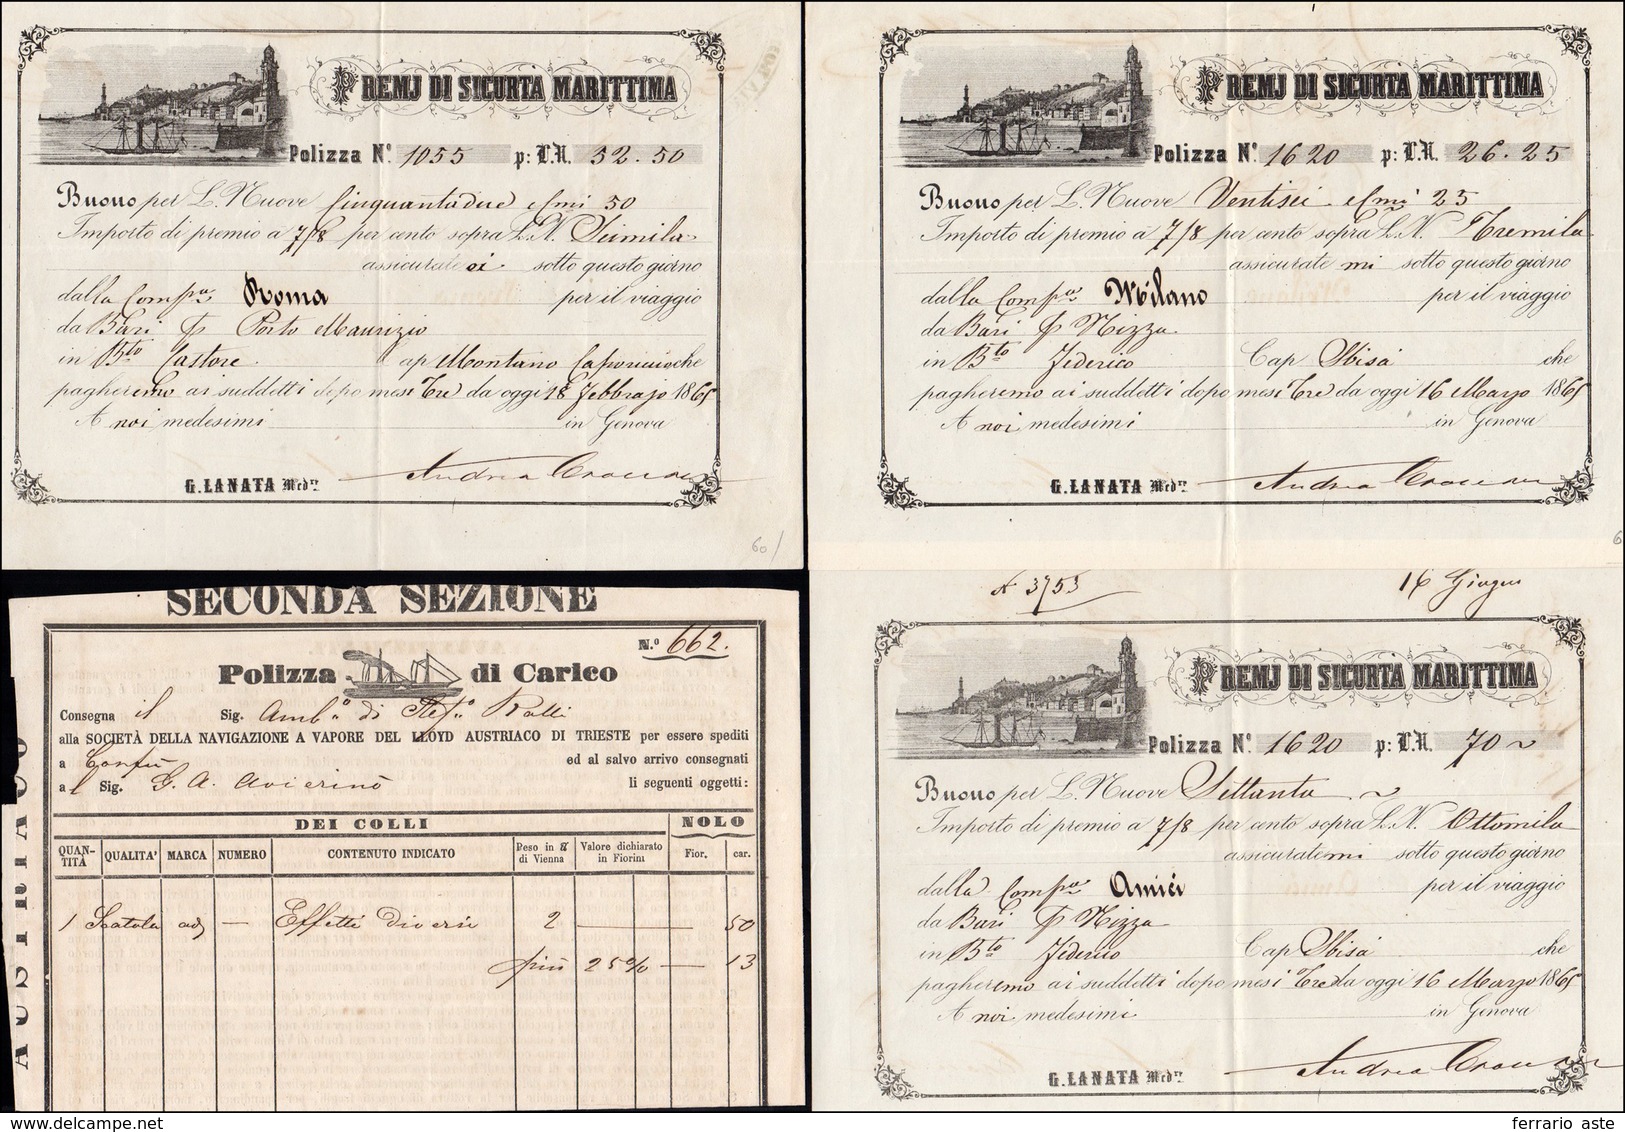 PREMJ DI SICURTÀ MARITTIMA
Polizza N.º 1055 p: L.N. 52.50
Buono per L. Nuove Cinquantadue e C.mi 50
Importo di premio à 7/8 per cento sopra L.N. Seimila
assicurate ci sotto questo giorno
dalla Comp.ª Roma per il viaggio
da Bari p Porto Maurizio
in B.to Castore Cap Montano che
pagheremo ai suddetti dopo mesi Tre da oggi 18 Febbrajo 1865
A noi medesimi in Genova
G. LANATA Med.re Andrea
60/
PREMJ DI SICURTÀ MARITTIMA
Polizza N.º 1620 p: L.N. 26.25
Buono per L. Nuove Ventisei e C.mi 25
Importo di premio à 7/8 per cento sopra L.N. Tremila
assicurate mi sotto questo giorno
dalla Comp.ª Milano per il viaggio
da Bari p Nizza
in B.to Federico Cap Sbisà che
pagheremo ai suddetti dopo mesi Tre da oggi 16 Marzo 1865
A noi medesimi in Genova
G. LANATA Med.re Andrea
6
SECONDA SEZIONE
N.º 662.
Polizza di Carico
Consegna il Sig. Amb.º di Stef.º Ralli
alla SOCIETÀ DELLA NAVIGAZIONE A VAPORE DEL LLOYD AUSTRIACO DI TRIESTE per essere spediti
a Corfù ed al salvo arrivo consegnati
al Sig. G. A. Avierinò li seguenti oggetti:
DEI COLLI NOLO
QUANTITÀ QUALITA' MARCA NUMERO CONTENUTO INDICATO Peso in ℔ di Vienna Valore dichiarato in Fiorini Fior. car.
1 Scatola ad — Effetti diversi 2 — — 50
più 25% — 13
AUSTRIACO
N 3753 16 Giugno
PREMJ DI SICURTÀ MARITTIMA
Polizza N.º 1620 p: L.N. 70 ~
Buono per L. Nuove Settanta ~
Importo di premio à 7/8 per cento sopra L.N. Ottomila
assicurate mi sotto questo giorno
dalla Comp.ª Amici per il viaggio
da Bari p Nizza
in B.to Federico Cap Sbisà che
pagheremo ai suddetti dopo mesi Tre da oggi 16 Marzo 1865
A noi medesimi in Genova
G. LANATA Med.re Andrea
ferrario aste